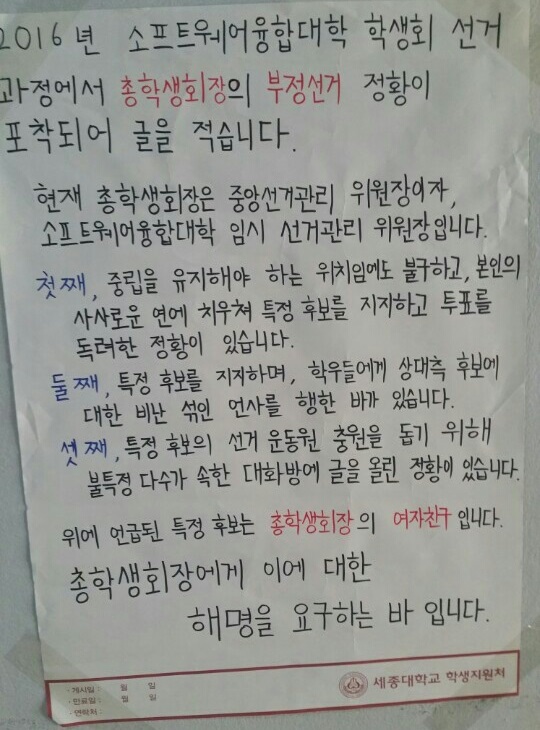 2016년 소프트웨어융합대학 학생회 선거
과정에서 총학생회장의 부정선거 정황이
포착되어 글을 적습니다.
현재 총학생회장은 중앙선거관리 위원장이자,
소프트웨어융합대학 임시 선거관리 위원장입니다.
첫째, 중립을 유지해야 하는 위치임에도 불구하고, 본인의
사사로운 연에 치우쳐 특정 후보를 지지하고 투표를
독려한 정황이 있습니다.
둘째, 특정 후보를 지지하며, 학우들에게 상대측 후보에
대한 비난 섞인 언사를 행한 바가 있습니다.
셋째, 특정 후보의 선거 운동원 충원을 돕기 위해
불특정 다수가 속한 대화방에 글을 올린 정황이 있습니다.
위에 언급된 특정 후보는 총학생회장의 여자친구입니다.
총학생회장에게 이에 대한
해명을 요구하는 바 입니다.
· 게시일 : 월 일
· 만료일 : 월 일
· 연락처 :
세종대학교 학생지원처